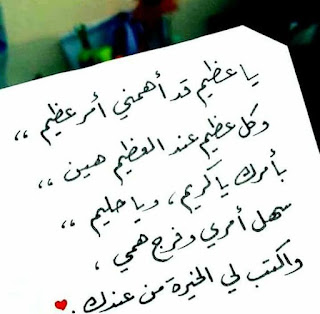 ياعظيم قد أهمني أمر عظيم ،،
وكل عظيم عند العظيم هين ،،
بأمرك ياكريم ، وياحليم ،،
سهل أمري وفرج همي ،
واكتب لي الخيرة من عندك . ♥